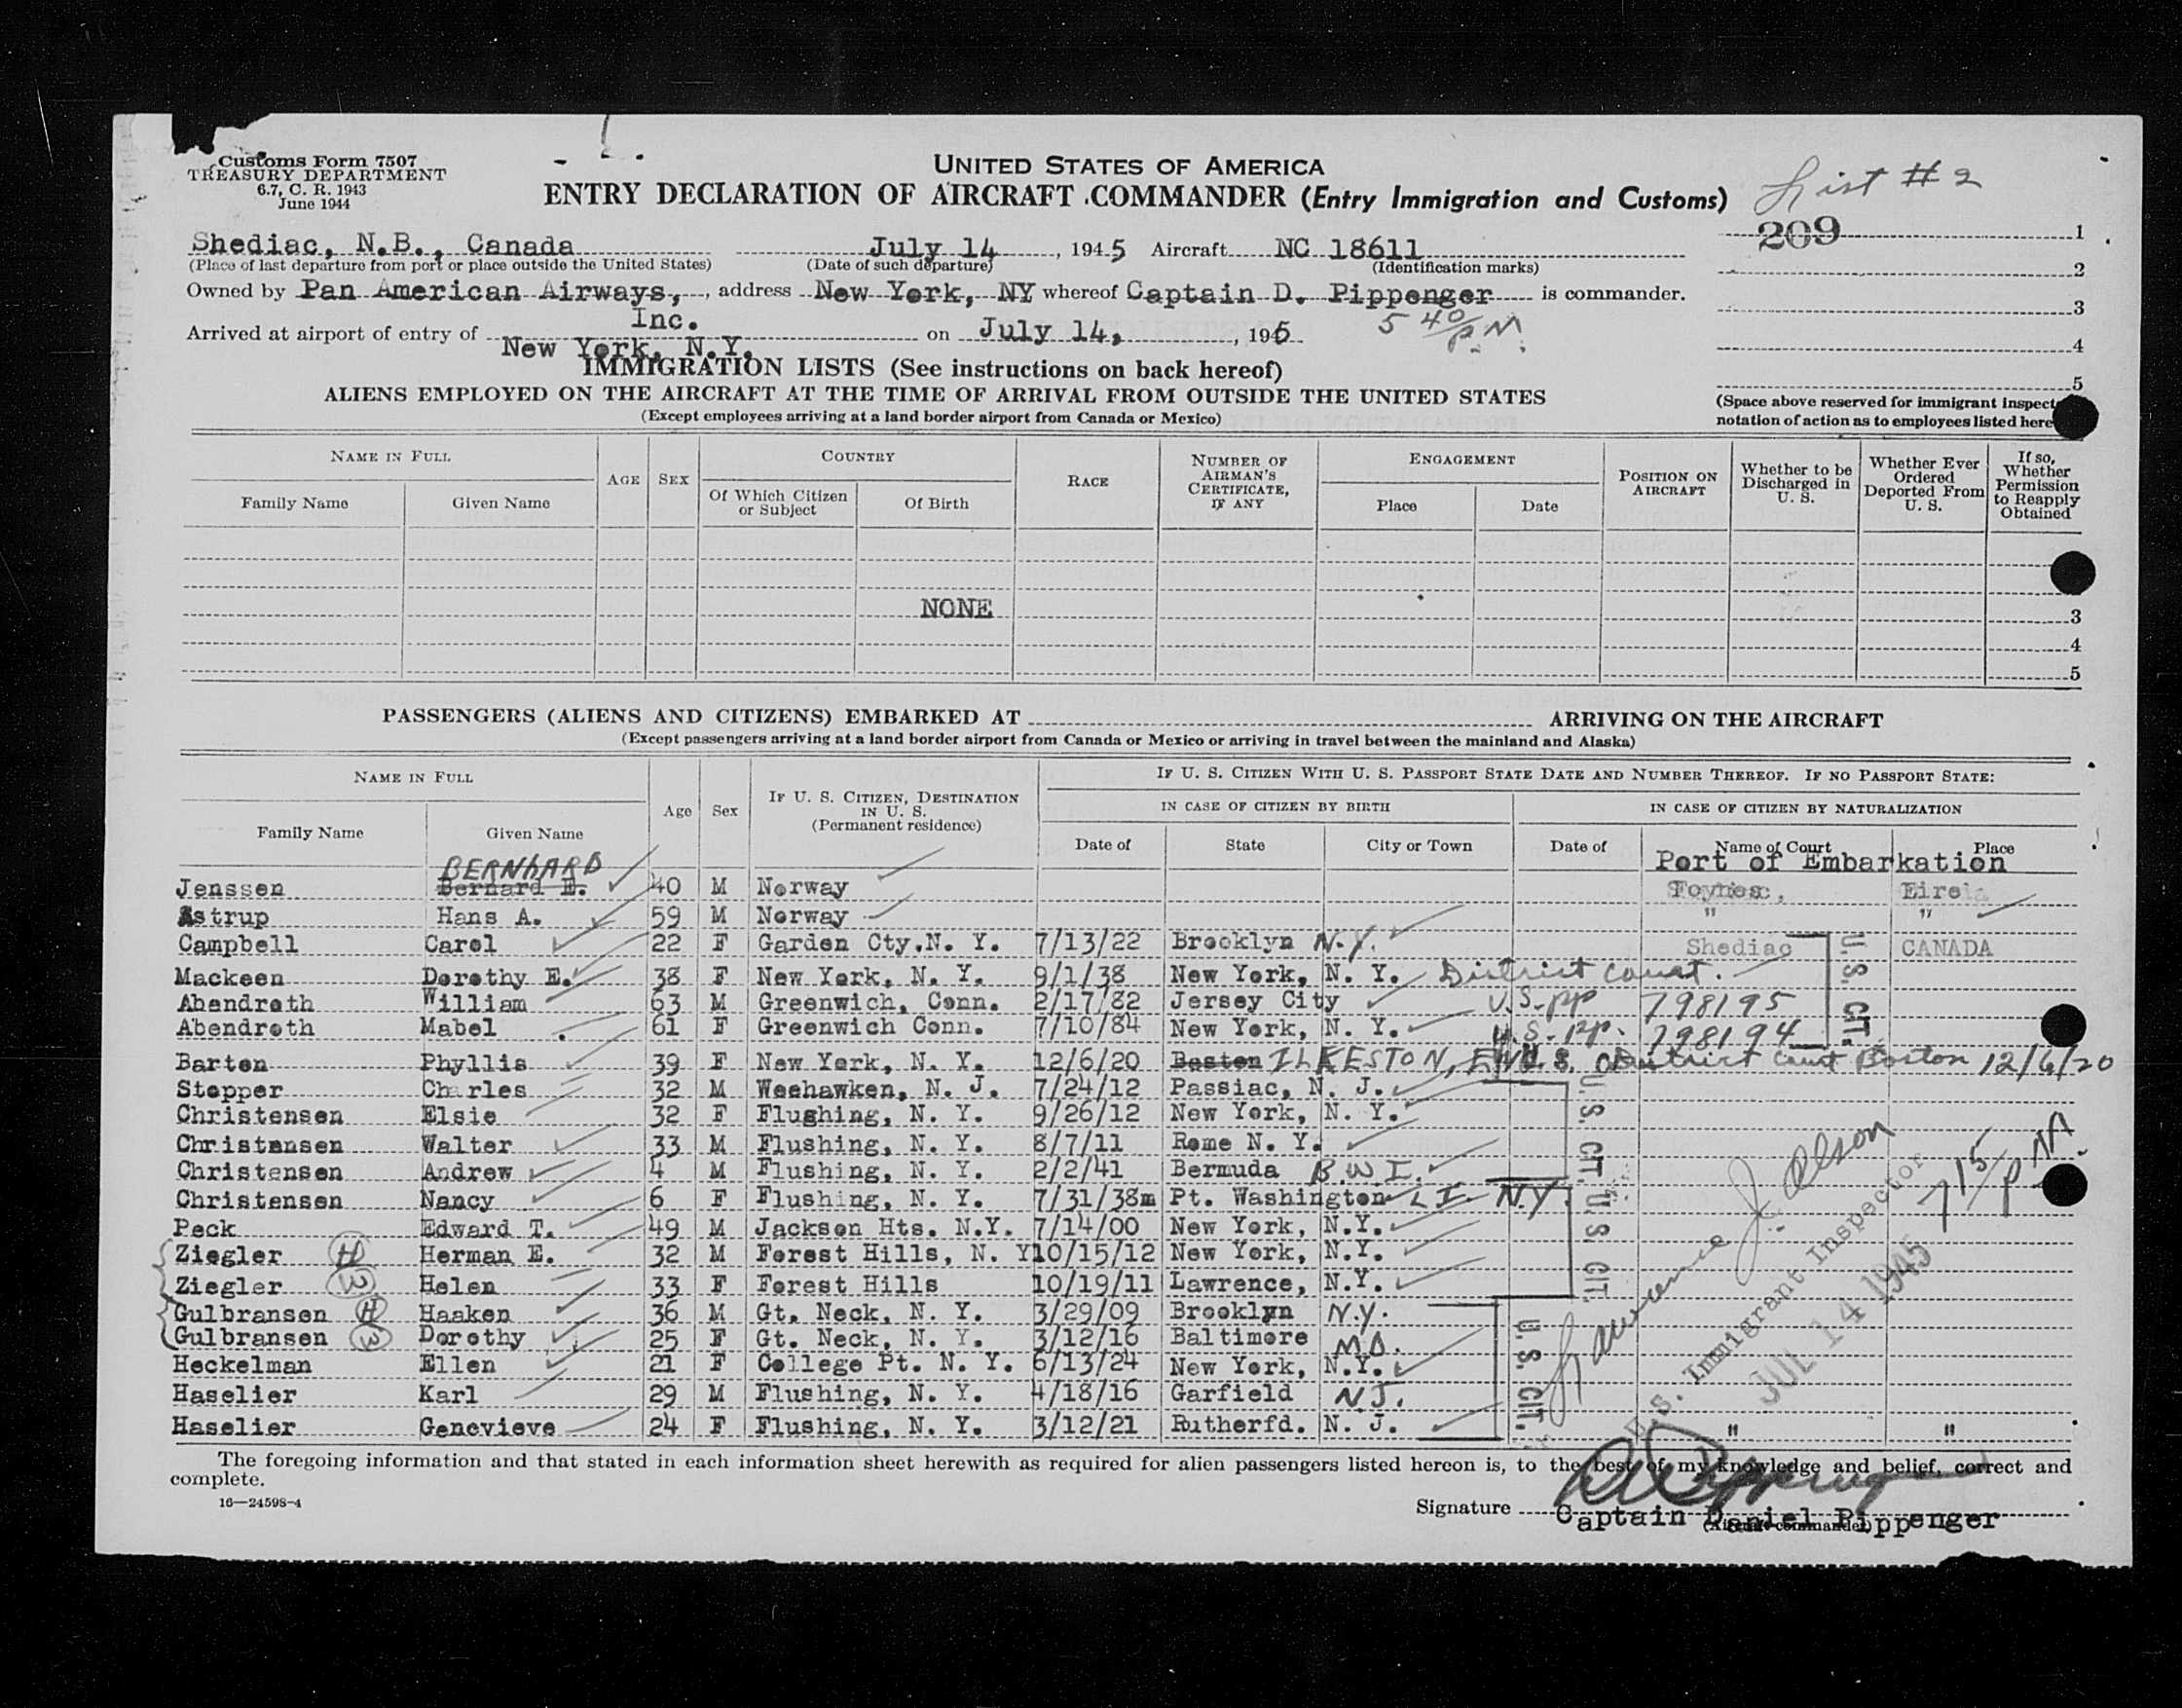 Customs Form 7507
TREASURY DEPARTMENT
6.7, C. R. 1943
June 1944
UNITED STATES OF AMERICA
ENTRY DECLARATION OF AIRCRAFT COMMANDER (Entry Immigration and Customs)
List # 2
209 1
Shediac, N.B., Canada July 14, 1945 Aircraft NC 18611
(Place of last departure from port or place outside the United States) (Date of such departure) (Identification marks)
2
Owned by Pan American Airways, Inc., address New York, NY whereof Captain D. Pippenger is commander.
3
Arrived at airport of entry of New York, N.Y. on July 14, 195 5 40/PM
4
IMMIGRATION LISTS (See instructions on back hereof)
5
ALIENS EMPLOYED ON THE AIRCRAFT AT THE TIME OF ARRIVAL FROM OUTSIDE THE UNITED STATES
(Except employees arriving at a land border airport from Canada or Mexico)
(Space above reserved for immigrant inspect
notation of action as to employees listed here
NAME IN FULL
Family Name Given Name
AGE SEX
COUNTRY
Of Which Citizen or Subject Of Birth
RACE
NUMBER OF AIRMAN'S CERTIFICATE, IF ANY
ENGAGEMENT
Place Date
POSITION ON AIRCRAFT
Whether to be Discharged in U. S.
Whether Ever Ordered Deported From U. S.
If so, Whether Permission to Reapply Obtained
NONE
3
4
5
PASSENGERS (ALIENS AND CITIZENS) EMBARKED AT ARRIVING ON THE AIRCRAFT
(Except passengers arriving at a land border airport from Canada or Mexico or arriving in travel between the mainland and Alaska)
NAME IN FULL
Family Name Given Name
Age Sex
IF U. S. CITIZEN, DESTINATION IN U. S.
(Permanent residence)
IF U. S. CITIZEN WITH U. S. PASSPORT STATE DATE AND NUMBER THEREOF. IF NO PASSPORT STATE:
IN CASE OF CITIZEN BY BIRTH IN CASE OF CITIZEN BY NATURALIZATION
Date of State City or Town Date of Name of Court Place
Port of Embarkation
BERNhARD
Jenssen Bernard E. 40 M Norway Foynes, Eire
Astrup Hans A. 59 M Norway " "
Campbell Carol 22 F Garden Cty.N. Y. 7/13/22 Brooklyn N.Y. Shediac CANADA
Mackeen Dorothy E. 38 F New York, N. Y. 9/1/38 New York, N. Y. District court.
Abendroth William 63 M Greenwich, Conn. 2/17/82 Jersey City U.S. pp 798195
Abendroth Mabel 61 F Greenwich Conn. 7/10/84 New York, N. Y. U.S. pp. 798194
U. S. CIT.
Barton Phyllis 39 F New York, N. Y. 12/6/20 Boston ILKESTON, ENG. U.S. District Court Boston 12/6/20
Stopper Charles 32 M Weehawken, N. J. 7/24/12 Passiac, N. J.
Christensen Elsie 32 F Flushing, N. Y. 9/26/12 New York, N. Y.
Christensen Walter 33 M Flushing, N. Y. 8/7/11 Rome N. Y.
Christensen Andrew 4 M Flushing, N. Y. 2/2/41 Bermuda B.W.I.
U. S. CIT.
Christensen Nancy 6 F Flushing, N. Y. 7/31/38m Pt. Washington L I N.Y
Peck Edward T. 49 M Jackson Hts. N.Y. 7/14/00 New York, N.Y.
Ziegler H Herman E. 32 M Forest Hills, N. Y 10/15/12 New York, N.Y.
Ziegler W Helen 33 F Forest Hills 10/19/11 Lawrence, N.Y.
U. S. CIT.
Gulbransen H Haaken 36 M Gt. Neck, N. Y. 3/29/09 Brooklyn N.Y.
Gulbransen W Dorothy 25 F Gt. Neck, N. Y. 3/12/16 Baltimore MD.
Heckelman Ellen 21 F College Pt. N. Y. 6/13/24 New York, N.Y.
Haselier Karl 29 M Flushing, N. Y. 4/18/16 Garfield N.J.
Haselier Genevieve 24 F Flushing, N. Y. 3/12/21 Rutherfd. N. J. " "
U. S. CIT.
Lawrence J. Olson
U.S. Immigrant Inspector
JUL 14 1945
7 15/PM
The foregoing information and that stated in each information sheet herewith as required for alien passengers listed hereon is, to the best of my knowledge and belief, correct and
complete.
16—24598-4
Signature
Captain Daniel Pippenger
(Aircraft commander)